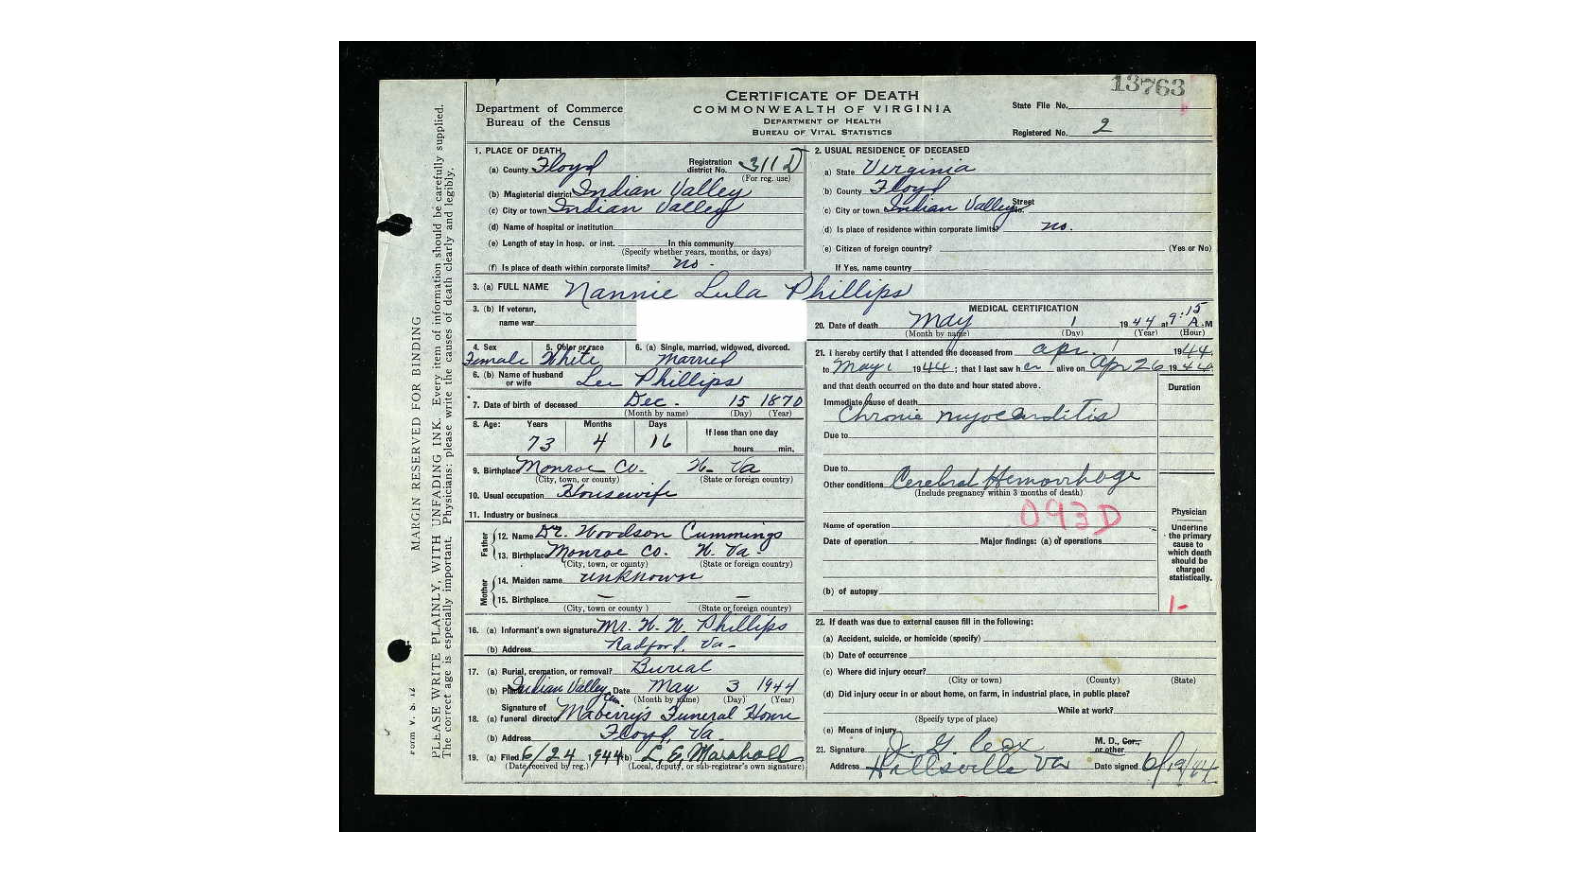 13763
CERTIFICATE OF DEATH
COMMONWEALTH OF VIRGINIA
DEPARTMENT OF HEALTH
BUREAU OF VITAL STATISTICS
Department of Commerce
Bureau of the Census
State File No.
Registered No. 2
1. PLACE OF DEATH
(a) County Floyd Registration district No. 311D
(For reg. use)
(b) Magisterial district Indian Valley
(c) City or town Indian Valley
(d) Name of hospital or institution
(e) Length of stay in hosp. or inst. In this community
(Specify whether years, months, or days)
(f) Is place of death within corporate limits? no.
2. USUAL RESIDENCE OF DECEASED
a) State Virginia
b) County Floyd
c) City or town Indian Valley Street No.
d) Is place of residence within corporate limits? no.
(e) Citizen of foreign country? (Yes or No)
If Yes, name country
3. (a) FULL NAME Nannie Lula Phillips
3. (b) If veteran,
name war
4. Sex 5. Color or race 6. (a) Single, married, widowed, divorced.
Female White Married
6. (b) Name of husband or wife Lee Phillips
7. Date of birth of deceased Dec. 15 1870
(Month by name) (Day) (Year)
8. Age: Years Months Days If less than one day
73 4 16 hours min.
9. Birthplace Monroe Co. W. Va
(City, town, or county) (State or foreign country)
10. Usual occupation Housewife
11. Industry or business
Father
12. Name Dr. Woodson Cummings
13. Birthplace Monroe Co. W. Va.
(City, town, or county) (State or foreign country)
Mother
14. Maiden name unknown
15. Birthplace — —
(City, town or county) (State or foreign country)
16. (a) Informant's own signature Mr. W. W. Phillips
(b) Address Radford, Va.
17. (a) Burial, cremation, or removal? Burial
(b) Place Indian Valley Cem Date May 3 1944
(Month by name) (Day) (Year)
18. Signature of
(a) funeral director Maberry's Funeral Home
(b) Address Floyd, Va.
19. (a) Filed 6/24 1944 (b) L. E. Marshall
(Date received by reg.) (Local, deputy, or sub-registrar's own signature)
MEDICAL CERTIFICATION
20. Date of death May 1 1944 at 9:15 A.M
(Month by name) (Day) (Year) (Hour)
21. I hereby certify that I attended the deceased from Apr. 1 1944
to May 1 1944; that I last saw her alive on Apr 26 1944
and that death occurred on the date and hour stated above. Duration
Immediate cause of death
Chronic myocarditis
Due to
Due to
Other conditions Cerebral Hemorrhage
(Include pregnancy within 3 months of death)
093D
Name of operation
Date of operation Major findings: (a) of operations
(b) of autopsy
Physician
Underline
the primary
cause to
which death
should be
charged
statistically.
1-
22. If death was due to external causes fill in the following:
(a) Accident, suicide, or homicide (specify)
(b) Date of occurrence
(c) Where did injury occur?
(City or town) (County) (State)
(d) Did injury occur in or about home, on farm, in industrial place, in public place?
While at work?
(Specify type of place)
(e) Means of injury
21. Signature J. G. Cox M. D., Cor., or other
Address Hillsville Va Date signed 6/19/44
MARGIN RESERVED FOR BINDING
PLEASE WRITE PLAINLY, WITH UNFADING INK. Every item of information should be carefully supplied.
The correct age is especially important. Physicians: please write the causes of death clearly and legibly.
Form V. S. 12